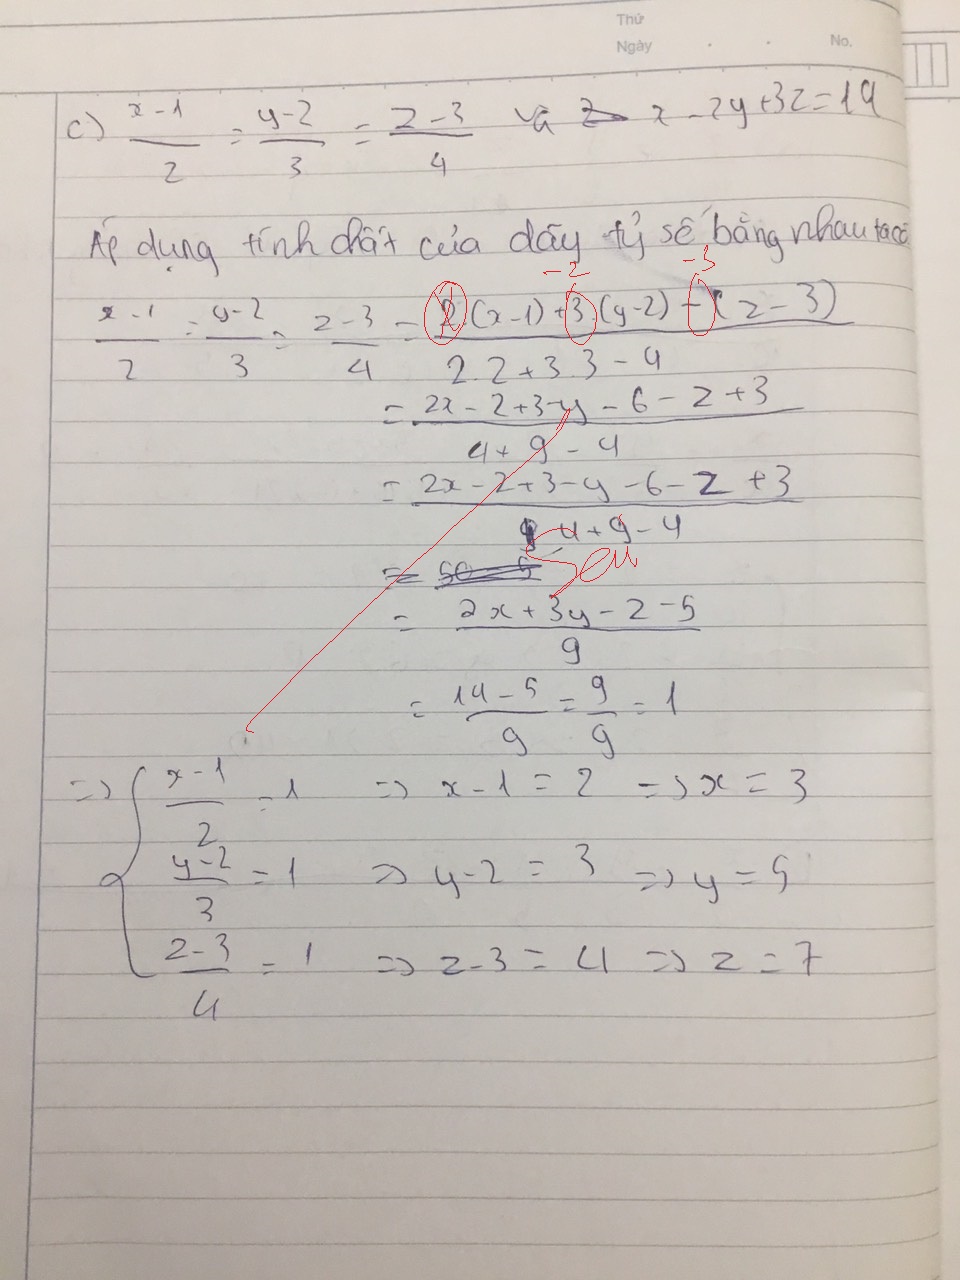 Thứ
Ngày . . No.
c) x-1/2 = y-2/3 = z-3/4 và x - 2y + 3z = 14
Áp dụng tính chất của dãy tỷ số bằng nhau ta có
-2 -3
x-1/2 = y-2/3 = z-3/4 = 2(x-1)+3.(y-2)-(z-3)/2.2+3.3-4
= 2x-2+3-y-6-z+3/4+9-4
= 2x-2+3-y-6-z+3/4+9-4
= 2x+3y-z-5/9
= 14-5/9 = 9/9 = 1
=> { x-1/2 = 1 => x-1 = 2 => x = 3
y-2/3 = 1 => y-2 = 3 => y = 5
z-3/4 = 1 => z-3 = 4 => z = 7